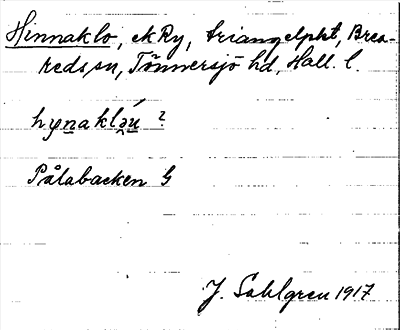 Hinnaklo, ek Ry, triangelpkt, Brea-
reds sn, Tönnersjö hd, Hall. l.
hynakləú ?
Pålabacken G
J. Sahlgren 1917